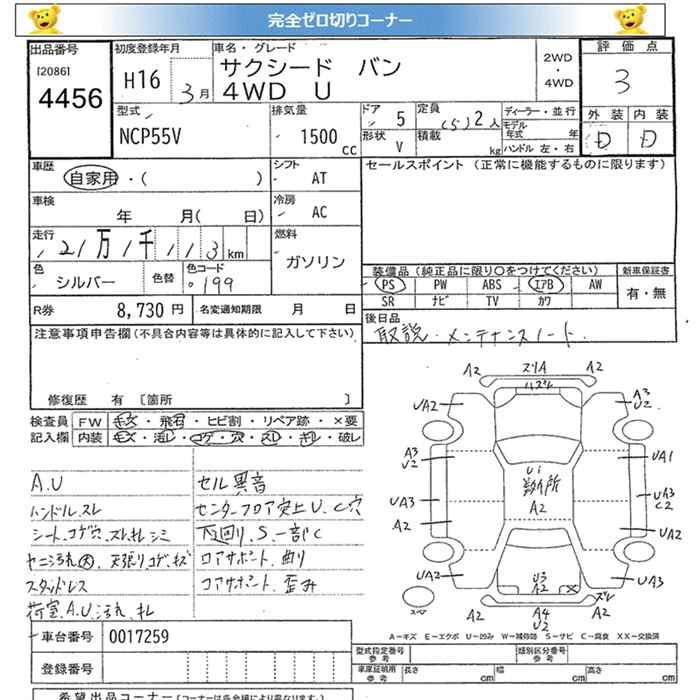 完全ゼロ切りコーナー
出品番号
[2086]
4456
初度登録年月
H16
3月
車名・グレード
サクシード バン
4WD U
2WD
・
4WD
評価点
3
型式
NCP55V
排気量
1500
cc
ドア
5
形状
V
定員
(5)2人
積載
kg
ディーラー・並行
モデル
年式
年
ハンドル 左・右
外装
内装
D
D
車歴
自家用・( )
シフト
AT
セールスポイント (正常に機能するものに限ります)
車検
年 月( 日)
冷房
AC
走行
21万1千113km
燃料
ガソリン
色
シルバー
色替
色コード
199
装備品(純正品に限り○をつけてください)
PS PW ABS エアB AW
SR ナビ TV カワ
新車保証書
有・無
R券
8,730 円
名変通知期限 月 日
後日品
取説・メンテナンスノート
注意事項申告欄(不具合内容等は具体的に記入して下さい)
修復歴 有 〔箇所 〕
検査員
記入欄
FW キズ・飛石・ヒビ割・リペア跡・×要
内装 キズ・汚レ・コゲ・穴・スレ・キレ・破レ
A.U
ハンドルスレ
シート、コゲ穴、スレ、キレ、シミ
ヤニ汚れ大、天張りコゲ、キズ
スタッドレス
荷室、A.U、汚れ、キレ
セル異音
センターフロア突上U、C穴
下回り、S、一部C
ロアサポート、曲り
コアサポート、歪み
A2 ズリA A2
ハズレ
UA2
A3
U2
A3
U2
UA1
Ui
A2
UA3
UA3
C2
A2
UA2
UA2
U3
A2
UA3
スペア
A2
A4
U2
ズレ
A－キズ E－エクボ U－凹み W－補修跡 S－サビ C－腐食 XX－交換済
車台番号
0017259
登録番号
型式指定番号
参考
類別区分番号
参考
車庫証明用
参考
長さ
cm
幅
cm
高さ
cm
希望出品コーナー